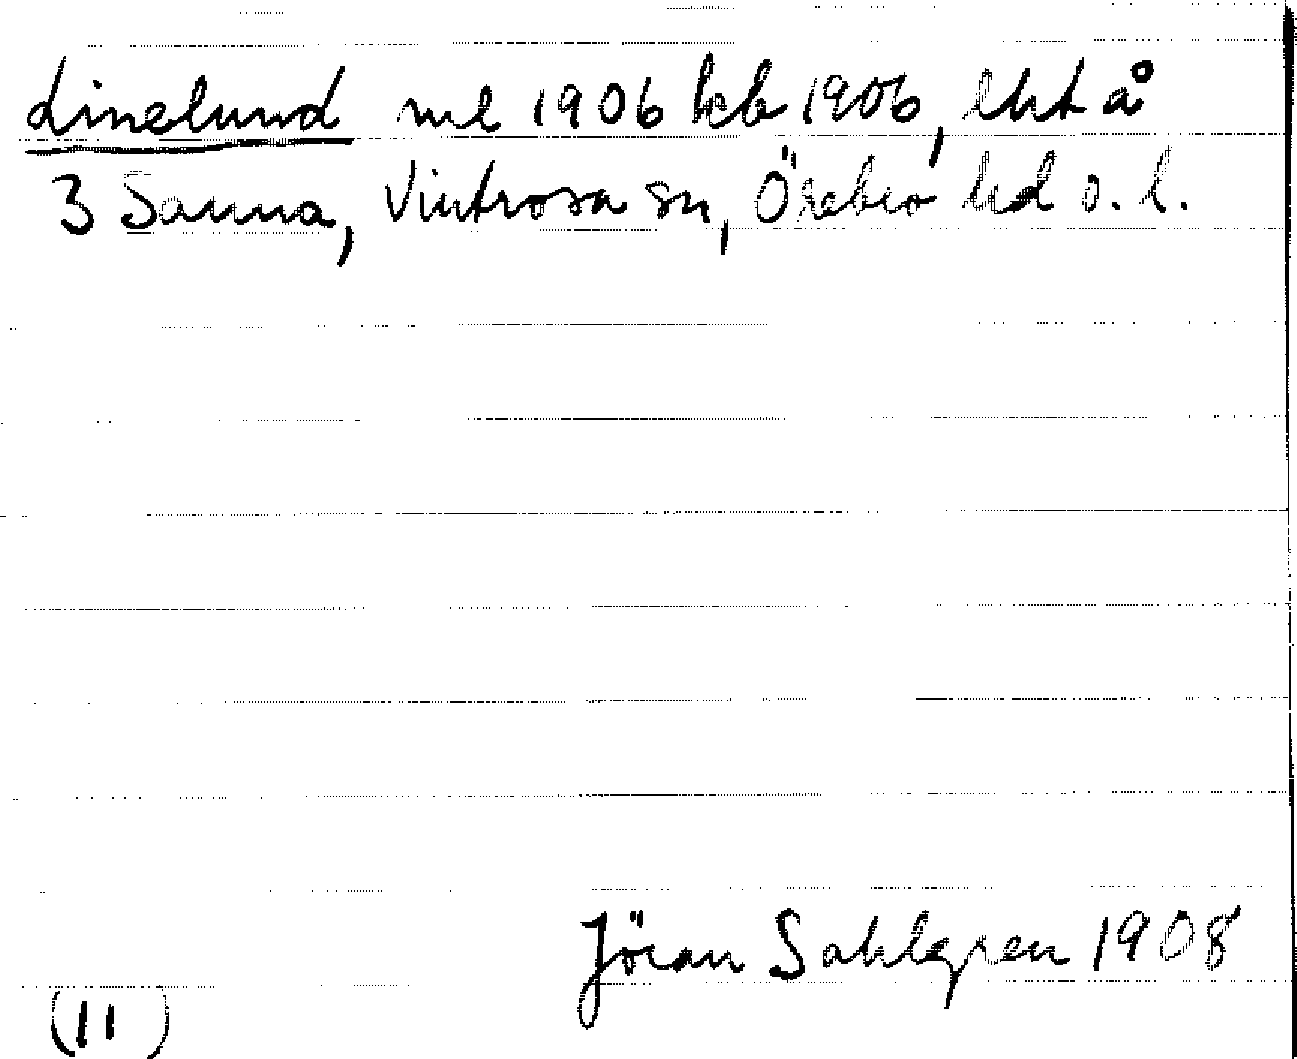 Linelund ml 1906 kcb 1906, lht å
3 Sanna, Vintrosa sn, Örebro hd o. l.
Jöran Sahlgren 1908
(11)